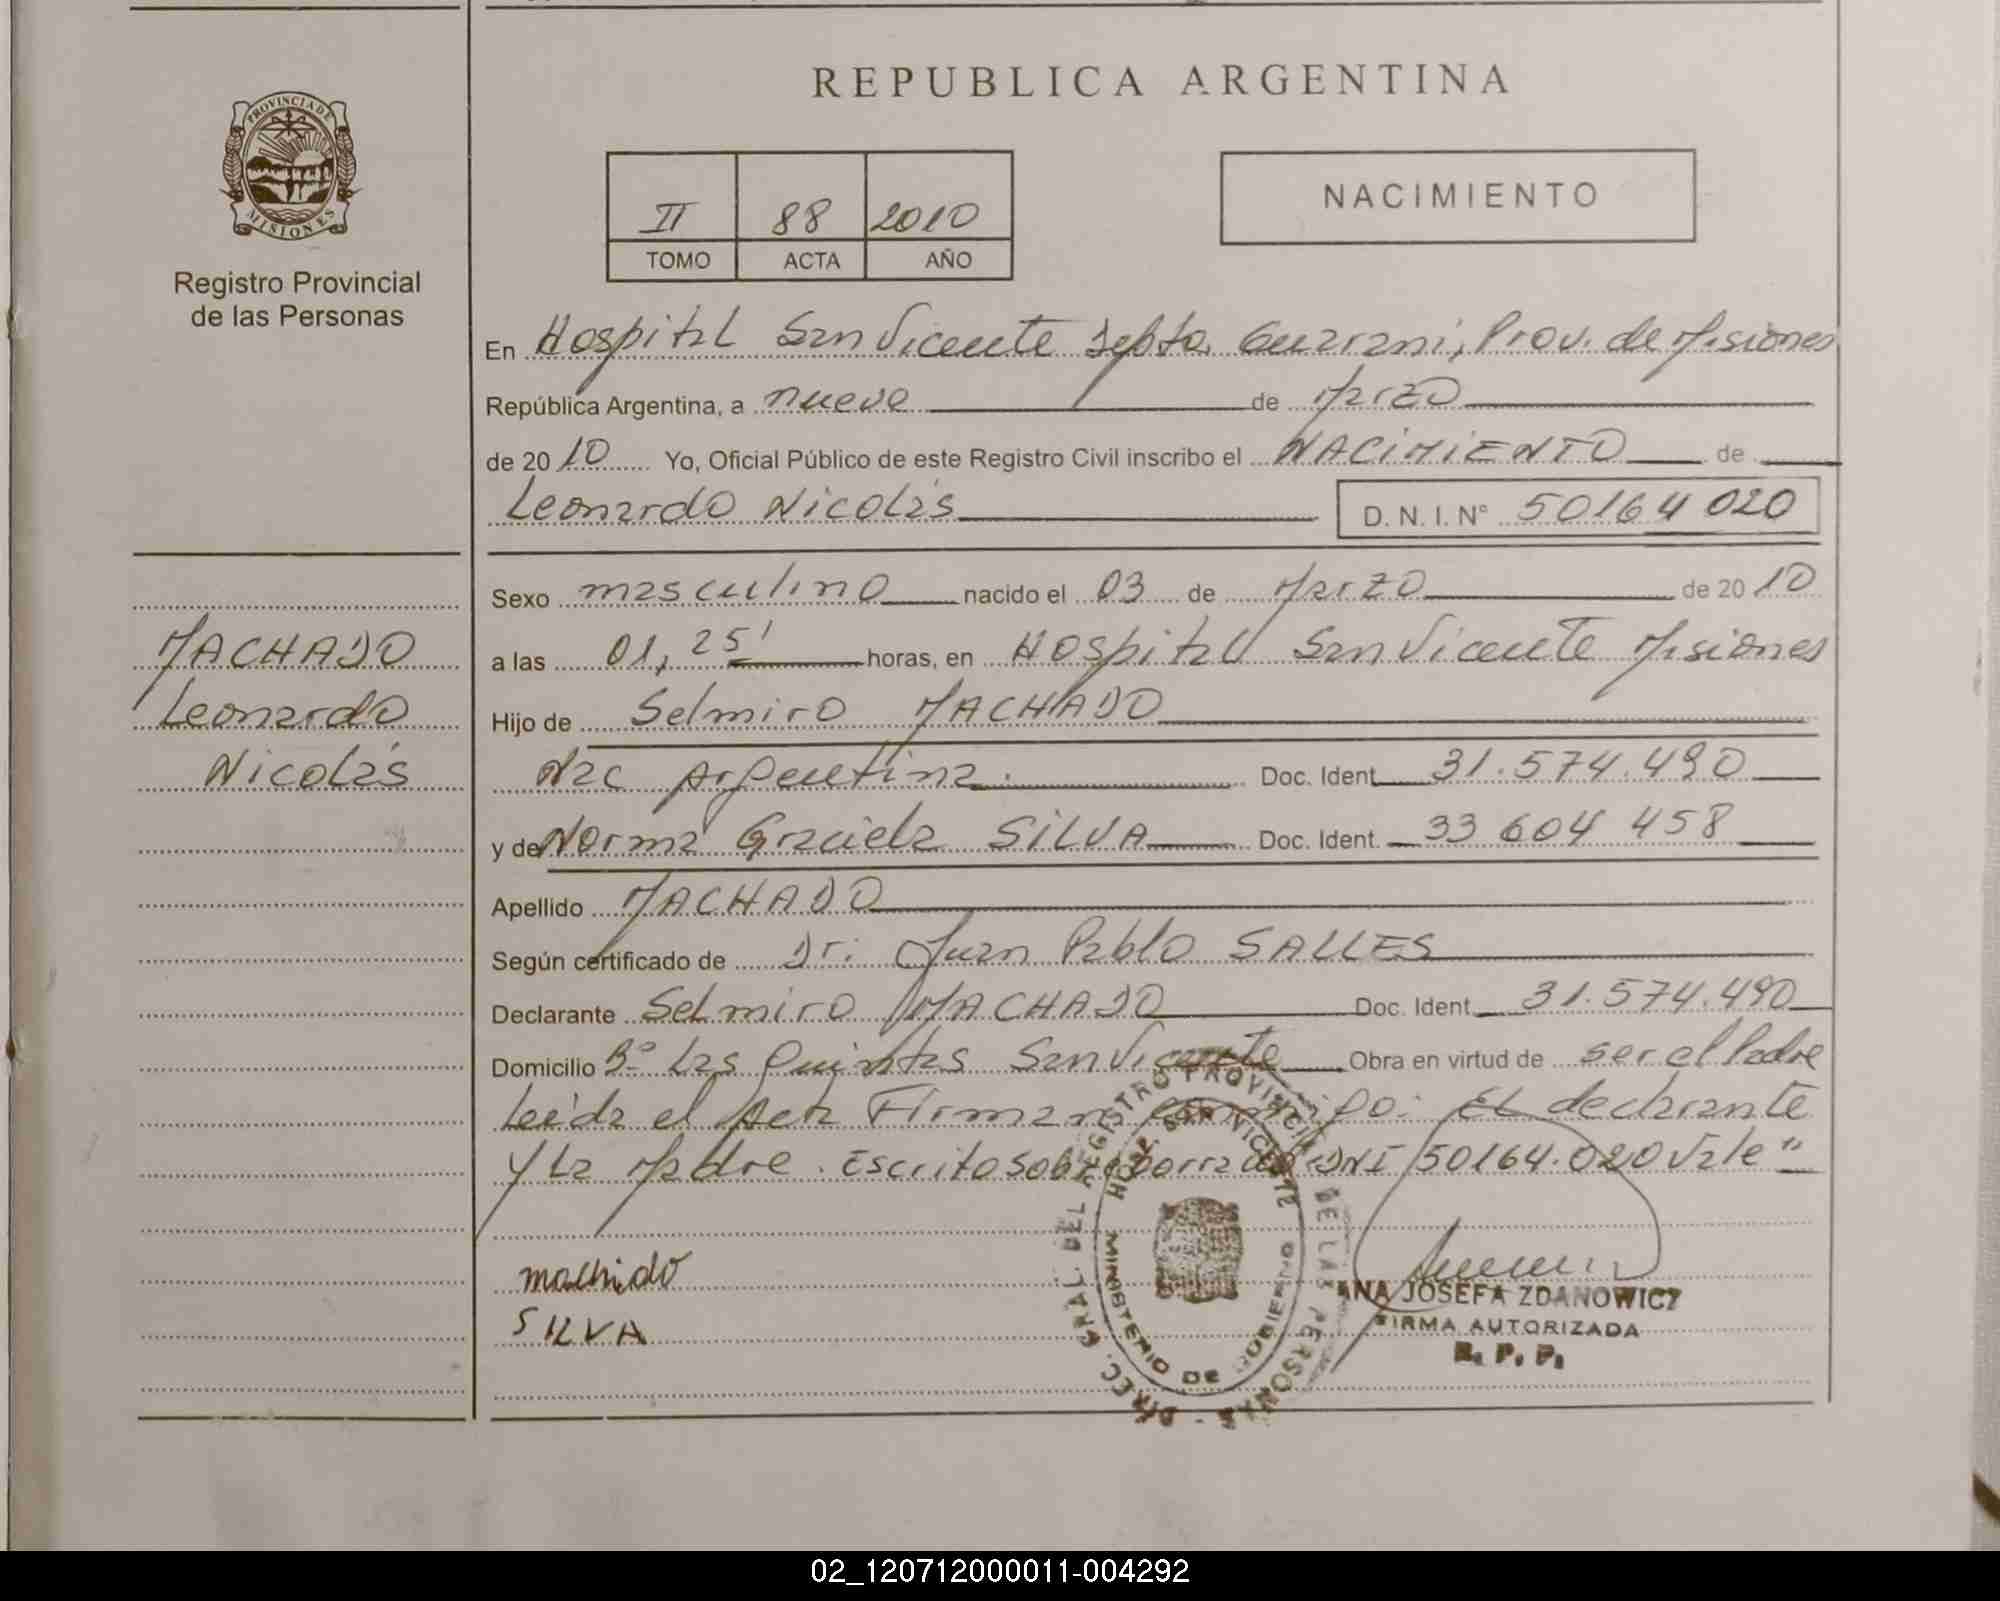 REPUBLICA ARGENTINA
PROVINCIA DE
MISIONES
Registro Provincial
de las Personas
II 88 2010
TOMO ACTA AÑO
NACIMIENTO
En Hospital San Vicente Depto. Guarani, Prov. de Misiones
República Argentina, a nueve de Marzo
de 2010 Yo, Oficial Público de este Registro Civil inscribo el NACIMIENTO de
Leonardo Nicolás D. N. I. N° 50164 020
Sexo masculino nacido el 03 de Marzo de 2010
a las 01,25' horas, en Hospital San Vicente Misiones
Hijo de Selmiro MACHADO
Nac Argentina. Doc. Ident. 31.574.490
y de Norma Graciela SILVA Doc. Ident. 33 604 458
Apellido MACHADO
Según certificado de Dr. Juan Pablo SALLES
Declarante Selmiro MACHADO Doc. Ident. 31.574.490
Domicilio B° Las Quintas San Vicente Obra en virtud de ser el Padre
Leída el Acta Firman conmigo: El declarante
y la Madre. Escrito sobre borrado DNI 50164.020 Vale"
MACHADO
Leonardo
Nicolás
machido
SILVA
DIREC. GRAL. DEL REGISTRO PROVINCIAL DE LAS PERSONAS
HOSP. SAN VICENTE
MINISTERIO DE GOBIERNO
ANA JOSEFA ZDANOWICZ
FIRMA AUTORIZADA
R. P. P.
02_120712000011-004292